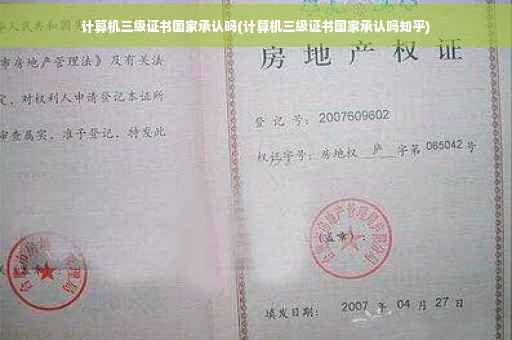 计算机三级证书国家承认吗(计算机三级证书国家承认吗知乎)
人民共和国
市房地产管理法》及有关法
定，对权利人申请登记本证所
审查属实，准予登记，特发此
房地产权证
登记号：2007609602
权证字号：房地权 庐 字第 085042 号
(盖章)：
填发日期： 2007 年 04 月 27 日